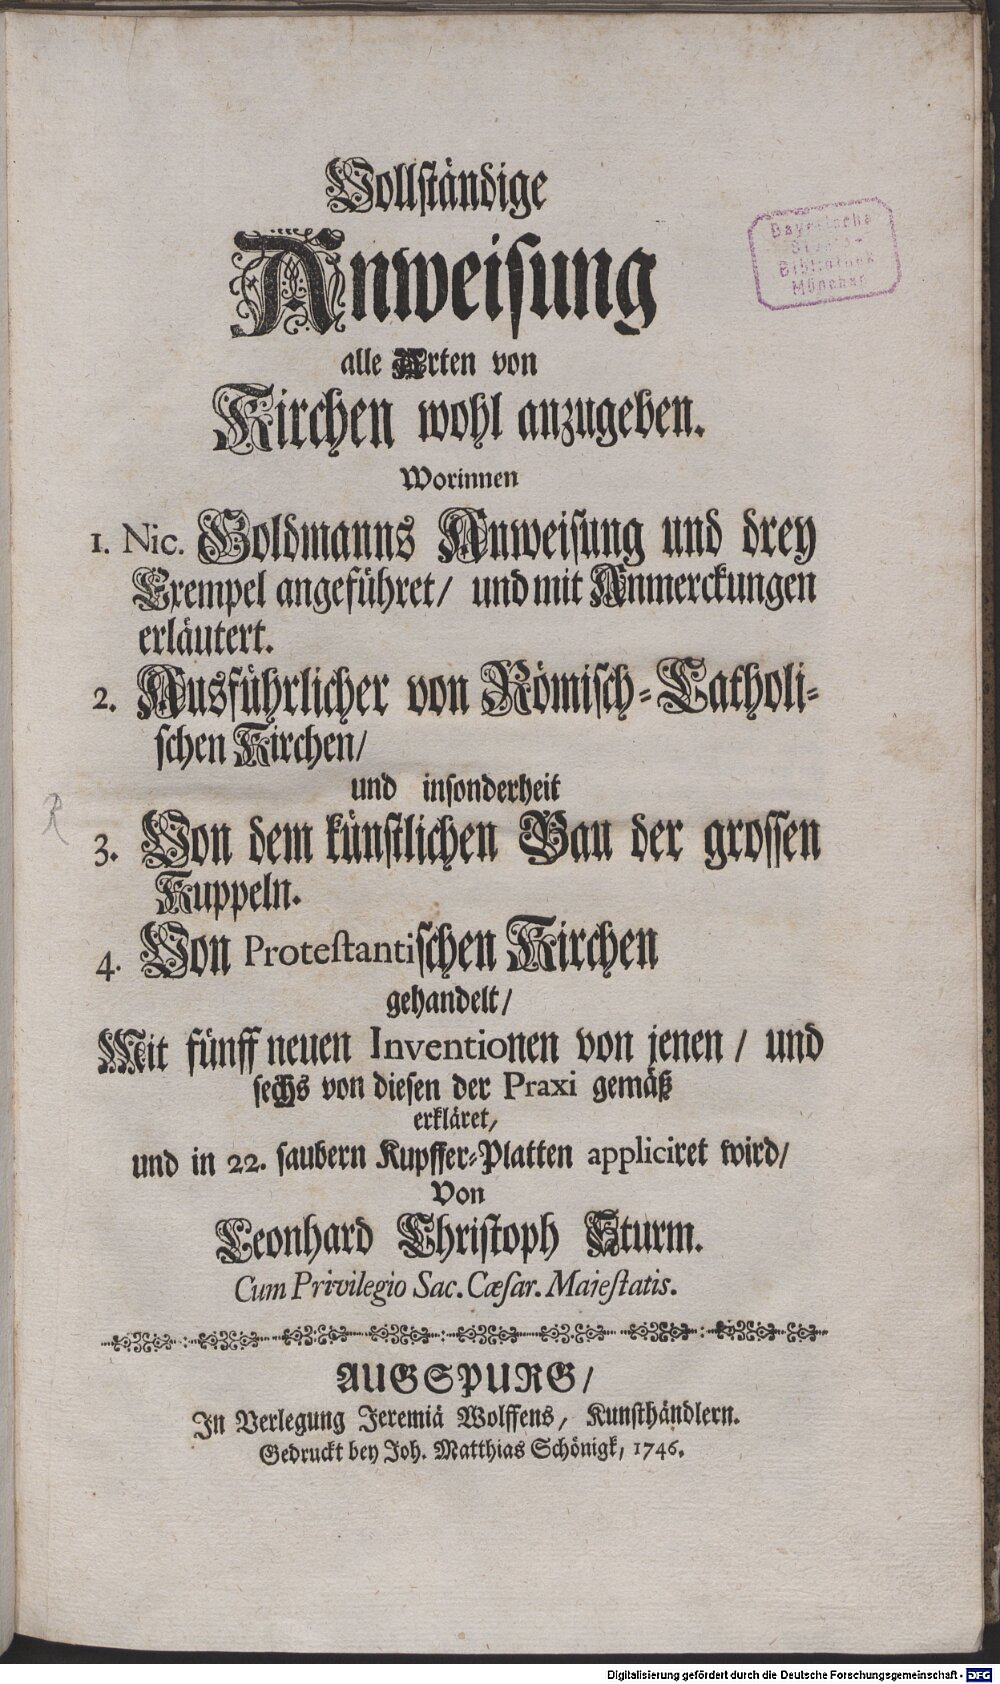 Vollständige
Anweisung
alle Arten von
Kirchen wohl anzugeben.
Worinnen
1. Nic. Goldmanns Anweisung und drey
Exempel angeführet/ und mit Anmerckungen
erläutert.
2. Ausführlicher von Römisch-Catholi-
schen Kirchen/
und insonderheit
3. Von dem künstlichen Bau der grossen
Kuppeln.
4. Von Protestantischen Kirchen
gehandelt/
Mit fünff neuen Inventionen von jenen / und
sechs von diesen der Praxi gemäß
erkläret,
und in 22. saubern Kupffer-Platten appliciret wird/
Von
Leonhard Christoph Sturm.
Cum Privilegio Sac. Cæsar. Maiestatis.
AUGSPURG/
In Verlegung Jeremiä Wolffens, Kunsthändlern.
Gedruckt bey Joh. Matthias Schönigk, 1746.
Bayerische
Staats-
Bibliothek
München
R
Digitalisierung gefördert durch die Deutsche Forschungsgemeinschaft - DFG